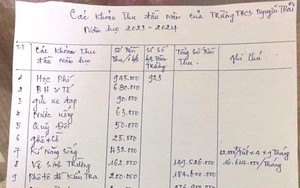 Các Khoản Thu đầu năm của Trường THCS Nguyễn Trãi
Năm học 2023-2024
TT Các Khoản Thu Số Tiền Thu/1HS Sĩ Số Tổng Số Tiền Thu Ghi Chú
1 Học Phí 945.000 923
2 BH y Tế 680.000
3 gửi xe đạp 90.000
4 nước uống 63.000
5 Quỹ Đội 50.000
6 ghế 25.000
7 Kĩ năng sống 432.000
8 Vệ Sinh Trường 162.000 149.526.000 16.614.000/Tháng
9 Phô tô đề Kiểm Tra 200.000 184.600.000